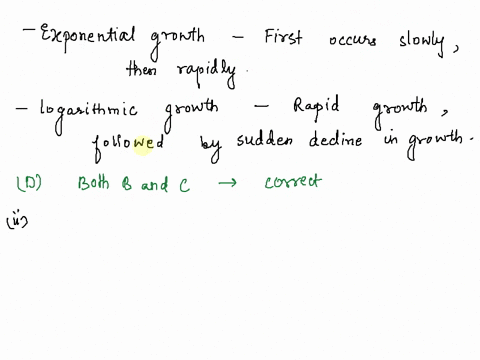 - Exponential growth - First occurs slowly,
then rapidly.
- Logarithmic growth - Rapid growth,
followed by sudden decline in growth.
(D) Both B and C → correct
(ii)